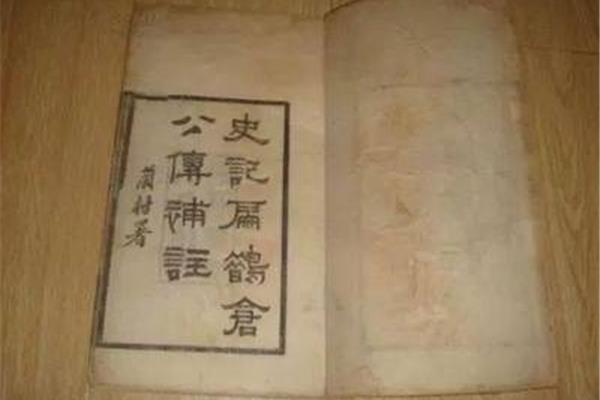 史記扁鵲倉
公傳補註
蘭村署